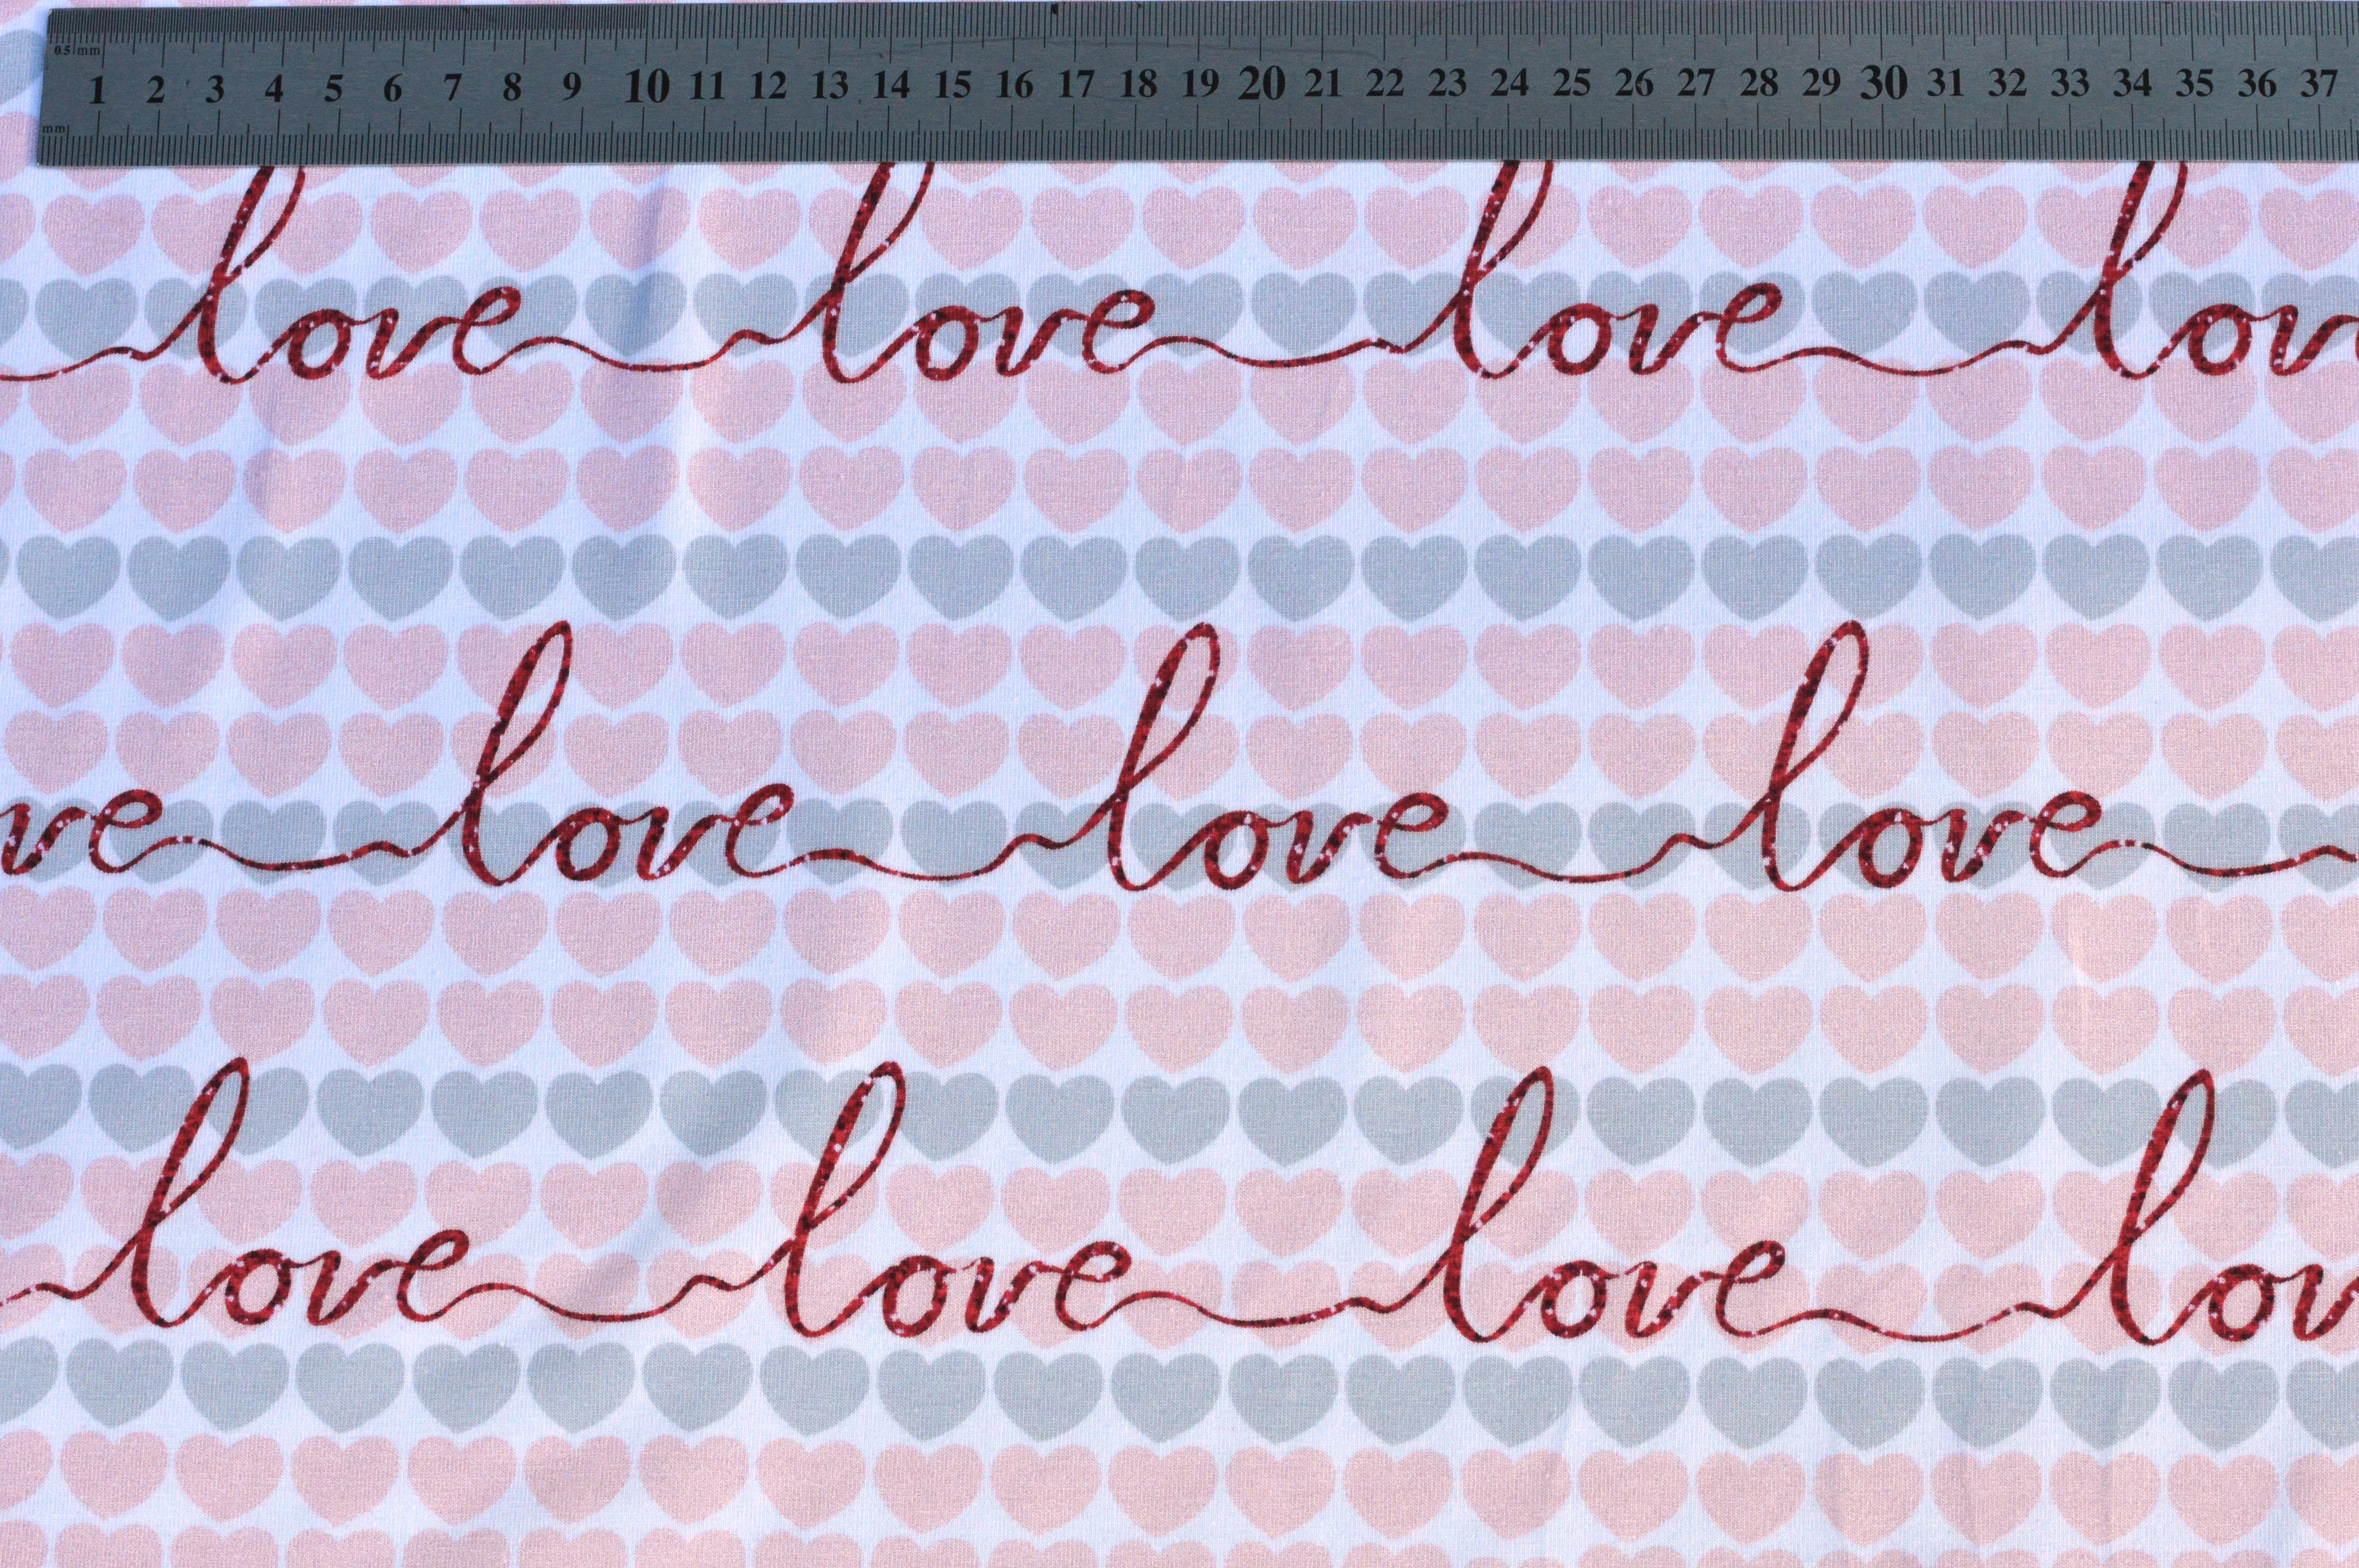 0.5 mm
1 2 3 4 5 6 7 8 9 10 11 12 13 14 15 16 17 18 19 20 21 22 23 24 25 26 27 28 29 30 31 32 33 34 35 36 37
mm
love love love lov
ve love love love
love love love lov